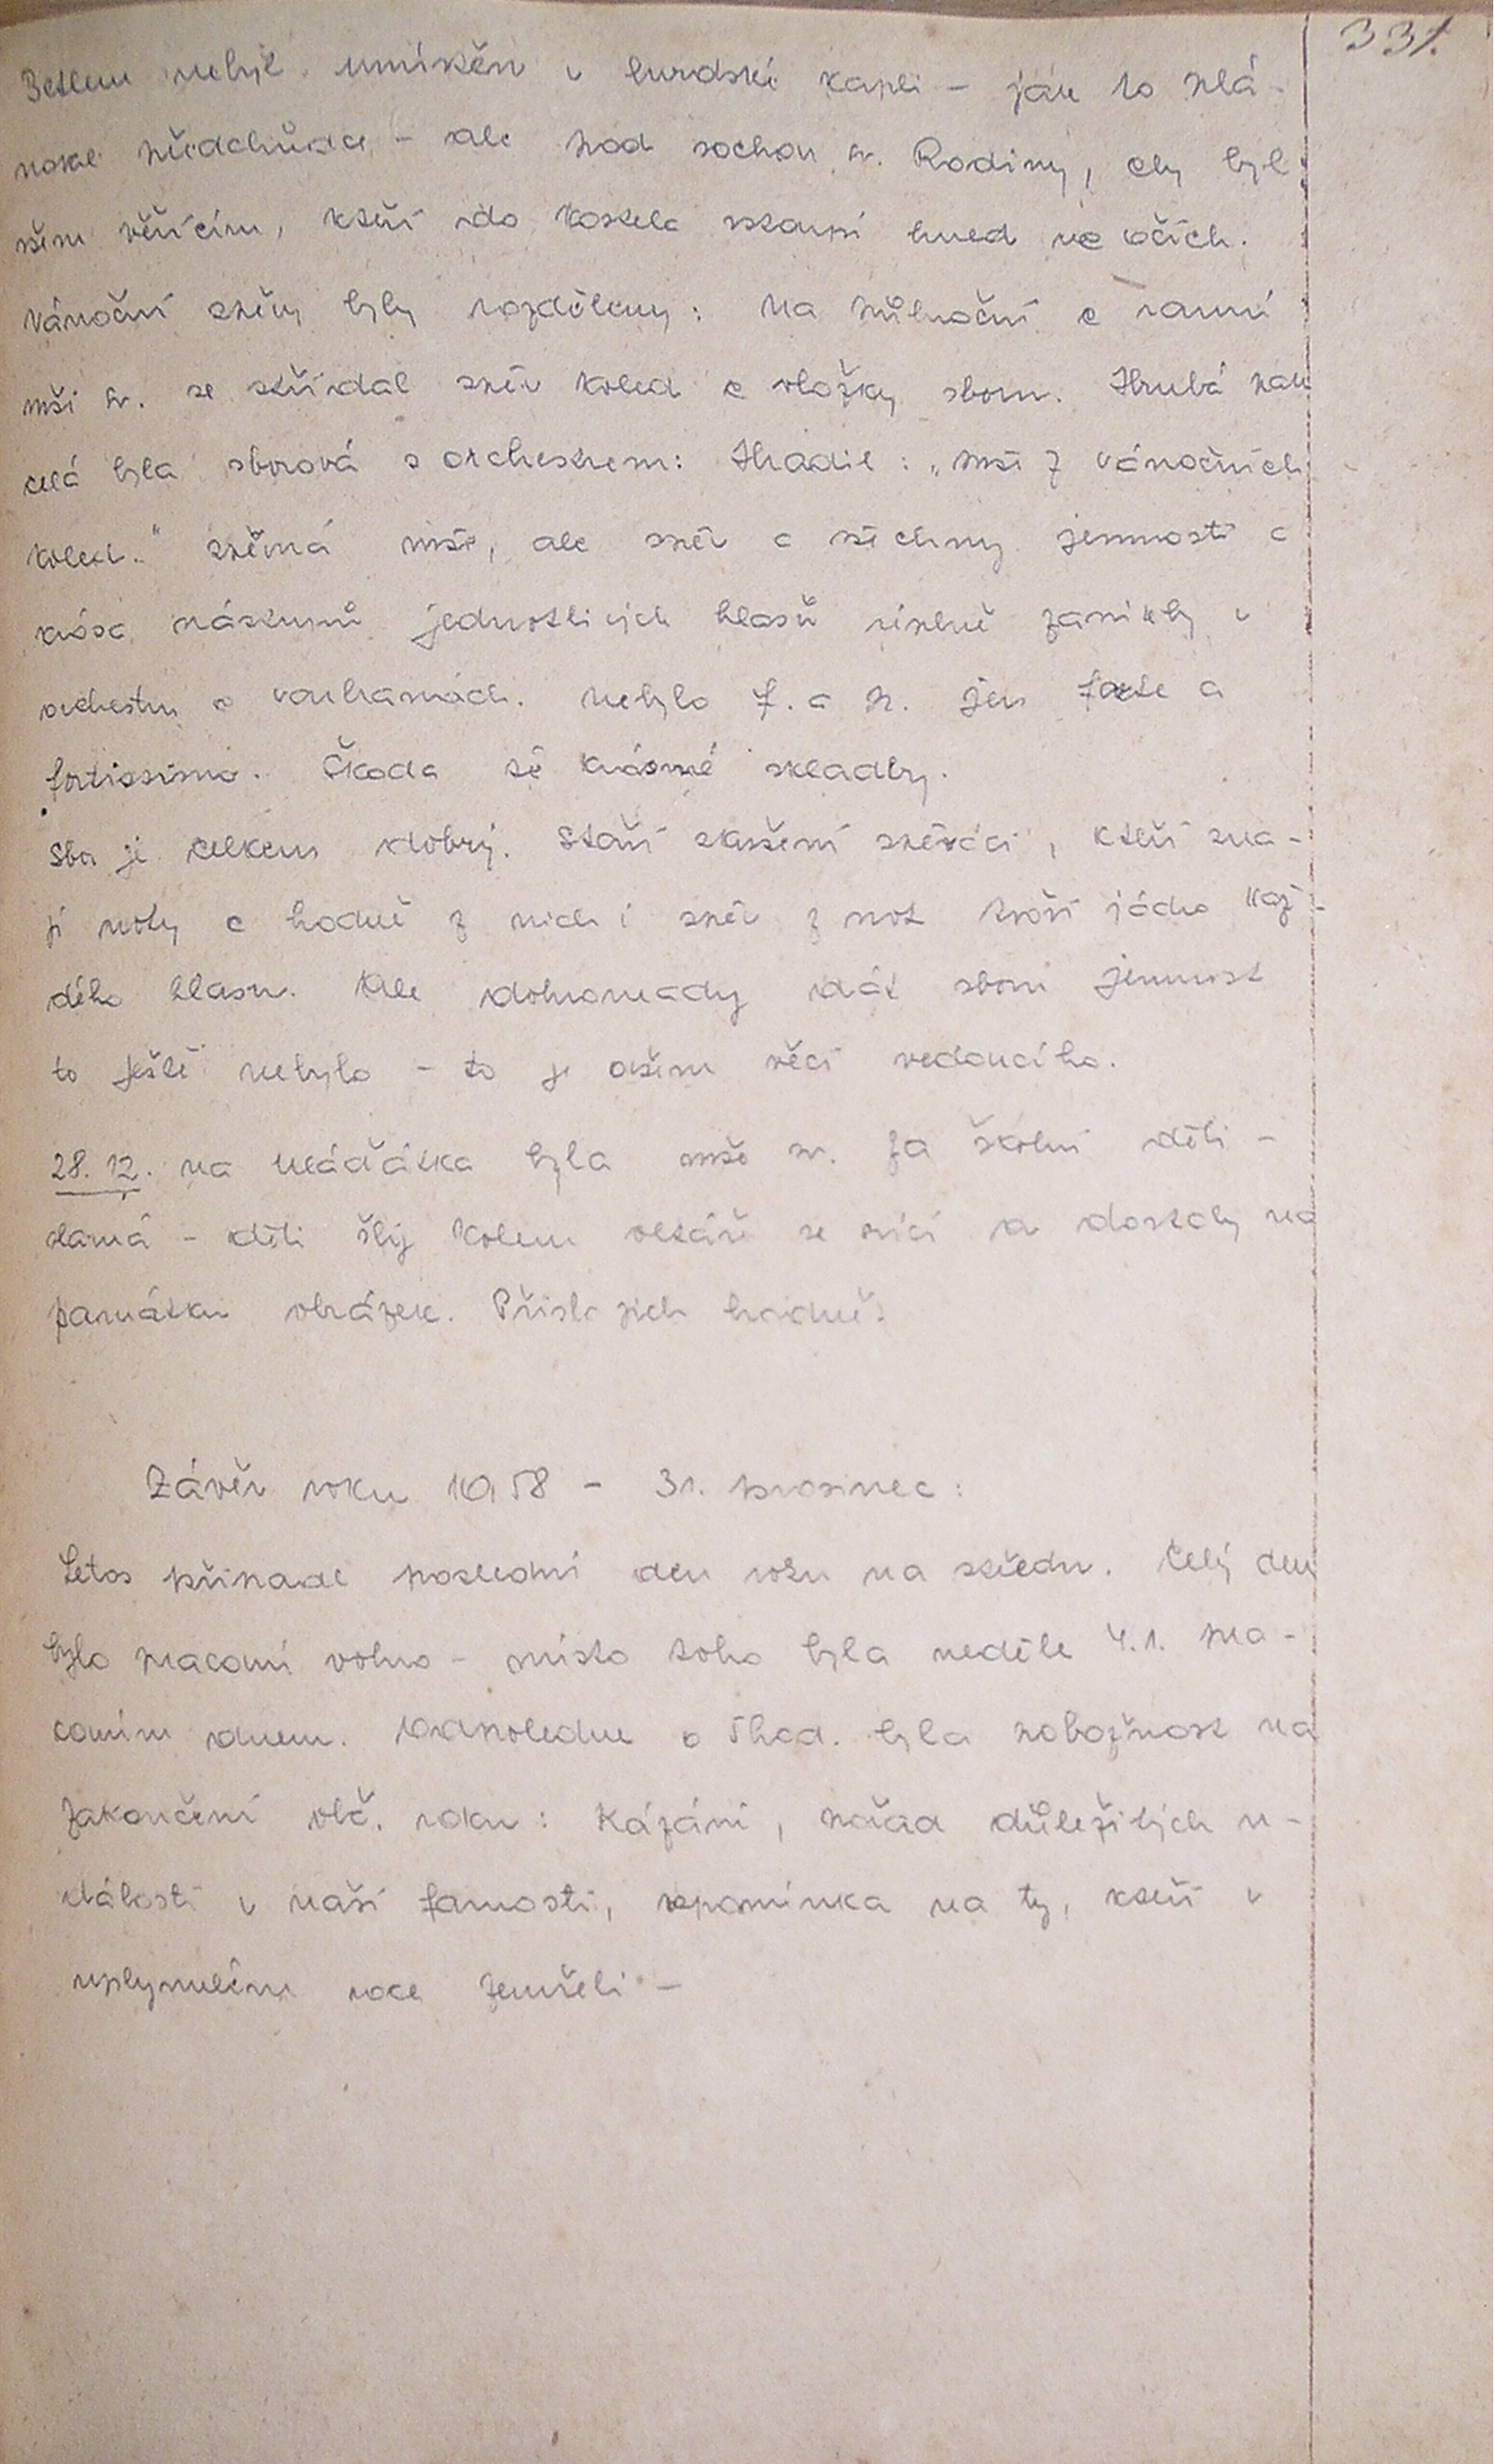 331.
Betlem nebyl umístěn v lurdské kapli – jak to plá-
noval předchůdce – ale pod sochou sv. Rodiny, aby byl
všem věřícím, kteří do kostela vstoupí hned na očích.
Vánoční zpěvy byly rozděleny: Na půlnoční a ranní
mši sv. se střídal zpěv koled a vložky sboru. Hrubá pak
celá byla sborová s orchestrem: Hradil: „Mše z vánočních
koled." zpěvná mše, ale zpěv a všechny jemnosti a
krása nástupů jednotlivých hlasů úplně zanikly v
orchestru a varhanách. Nebylo f. a p. jen forte a
fortissimo. Škoda té krásné skladby.
Sbor je celkem dobrý. Staří zkušení zpěváci, kteří zna-
jí noty a hodně z nich i zpěv z not tvoří jádro kaž-
dého hlasu. Ale dohromady dát sboru jemnost
to ještě nebylo – to je ovšem věcí vedoucího.
28. 12. na Mláďátka byla mše sv. za školní děti –
slavná – děti šly kolem oltáře se svící a dostaly na
památku obrázek. Přišlo jich hodně.
Závěr roku 1958 – 31. prosinec:
Letos připadl poslední den roku na středu. Celý den
bylo pracovní volno – místo toho byla neděle 4.1. pra-
covním dnem. Odpoledne o 5hod. byla pobožnost na
zakončení obč. roku: Kázání, pořad důležitých u-
dálostí v naší farnosti, vzpomínka na ty, kteří v
uplynulém roce zemřeli –